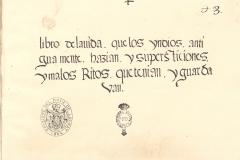 libro de la uida. que los yndios. anti
guamente. hazian. y supersticiones.
y malos Ritos. que tenian. y guarda
van.